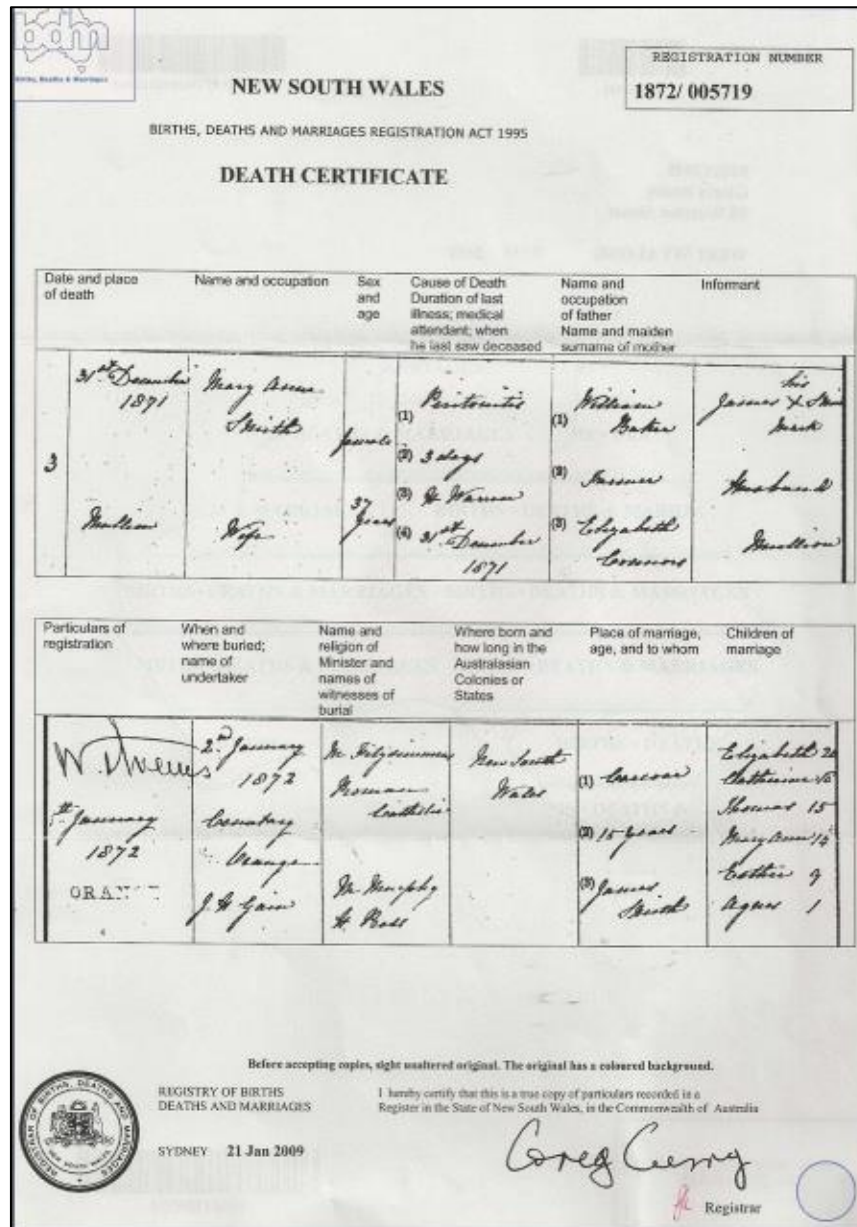 bdm
Births, Deaths & Marriages
REGISTRATION NUMBER
1872/ 005719
NEW SOUTH WALES
BIRTHS, DEATHS AND MARRIAGES REGISTRATION ACT 1995
DEATH CERTIFICATE
Date and place
of death
Name and occupation
Sex
and
age
Cause of Death
Duration of last
illness; medical
attendant; when
he last saw deceased
Name and
occupation
of father
Name and maiden
surname of mother
Informant
3
31st December
1871
Mullion
Mary Anne
Smith
Wife
female
37
years
(1) Peritonitis
(2) 3 days
(3) H Warren
(4) 31st December
1871
(1) William
Baker
(2) Farmer
(3) Elizabeth
Connors
his
James X
mark
Husband
Mullion
Particulars of
registration
When and
where buried;
name of
undertaker
Name and
religion of
Minister and
names of
witnesses of
burial
Where born and
how long in the
Australasian
Colonies or
States
Place of marriage,
age, and to whom
Children of
marriage
5th January
1872
2nd January
1872
Cemetery
Orange
M. Fitzsimmons
Roman
Catholic
M. Murphy
H. Ross
New South
Wales
(1) Carcoar
(2) 15 years
(3) James
Smith
Elizabeth 20
Catharine
Thomas 15
Mary Ann
Esther 9
Agnes 1
Before accepting copies, sight unaltered original. The original has a coloured background.
REGISTRAR OF BIRTHS, DEATHS AND MARRIAGES
NEW SOUTH WALES
REGISTRY OF BIRTHS
DEATHS AND MARRIAGES
SYDNEY 21 Jan 2009
I hereby certify that this is a true copy of particulars recorded in a
Register in the State of New South Wales, in the Commonwealth of Australia
Greg Curry
Registrar